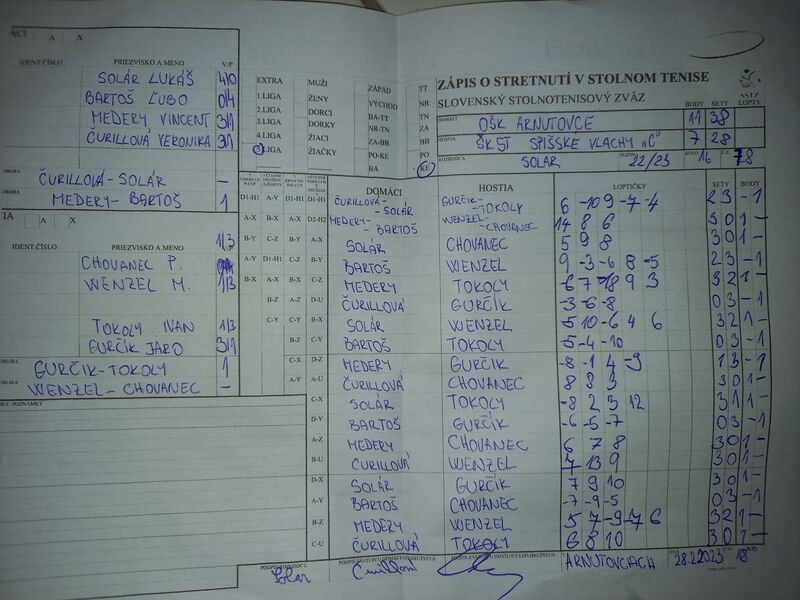 ÁCI A X
IDENT.ČÍSLO PRIEZVISKO A MENO V/P
SOLÁR LUKÁŠ 4/0
BARTOŠ ĽUBO 0/4
MEDERY VINCENT 3/1
ČURILLOVÁ VERONIKA 3/1
ČURILLOVÁ-SOLÁR —
MEDERY-BARTOŠ 1
TIA A X
IDENT.ČÍSLO PRIEZVISKO A MENO V/P
CHOVANEC P. 1/3
WENZEL M. 1/3
TOKOLY IVAN 1/3
GURČIK JARO 3/1
GURČIK-TOKOLY 1
WENZEL-CHOVANEC —
POZNÁMKY
EXTRA MUŽI ZÁPAD TT
1.LIGA ŽENY VÝCHOD NR
2.LIGA DORCI BA-TT TN
3.LIGA DORKY NR-TN ZA
4.LIGA ŽIACI ZA-BB BB
5.LIGA ŽIAČKY PO-KE PO
BA KE
ZÁPIS O STRETNUTÍ V STOLNOM TENISE
SLOVENSKÝ STOLNOTENISOVÝ ZVÄZ BODY SETY LOPTY
DOMÁCI OŠK ARNUTOVCE 11 38
HOSTIA ŠK ST SPIŠSKE VLACHY "C" 7 28
ROZHODCA SOLAR 22/23 KOLO 16 Č.Z. 78
DOMÁCI HOSTIA LOPTIČKY SETY BODY
D1-H1 A-Y D1-H1 D1-H1 ČURILLOVÁ-SOLÁR GURČIK-TOKOLY 6 -10 9 -7 -4 2 3 - 1
A-X B-X A-X D2-H2 MEDERY-BARTOŠ WENZEL-CHOVANEC 14 8 6 3 0 1 -
B-Y C-Z B-Y A-X SOLÁR CHOVANEC 5 9 8 3 0 1 -
A-Y D1-H1 C-Z B-Y BARTOŠ WENZEL 9 -3 -6 8 -5 2 3 - 1
B-X A-X B-X C-Z MEDERY TOKOLY -6 7 -18 9 3 3 2 1 -
B-Z A-Z D-U ČURILLOVÁ GURČÍK -3 -6 -8 0 3 - 1
C-Y C-Y B-X SOLÁR WENZEL -5 10 -6 4 6 3 2 1 -
B-Z C-Y BARTOŠ TOKOLY -5 -4 -10 0 3 - 1
C-X D-Z MEDERY GURČIK -8 -1 4 -9 1 3 - 1
A-Y A-U ČURILLOVÁ CHOVANEC 8 8 3 3 0 1 -
C-X SOLÁR TOKOLY -8 2 3 12 3 1 1 -
D-Y BARTOŠ GURČÍK -6 -5 -7 0 3 - 1
A-Z MEDERY CHOVANEC 6 7 8 3 0 1 -
B-U ČURILLOVÁ WENZEL 7 13 9 3 0 1 -
D-X SOLÁR GURČÍK 7 9 10 3 0 1 -
A-Y BARTOŠ CHOVANEC -7 -9 -5 0 3 - 1
B-Z MEDERY WENZEL 5 7 -9 -7 6 3 2 1 -
C-U ČURILLOVÁ TOKOLY 6 8 10 3 0 1 -
PODPIS ROZHODCU PODPIS ZÁSTUPCU DOMÁCEHO DRUŽSTVA PODPIS ZÁSTUPCU HOSŤUJÚCEHO DRUŽSTVA
Solar ARNUTOVCIACH 28.2.2023 18⁰⁰